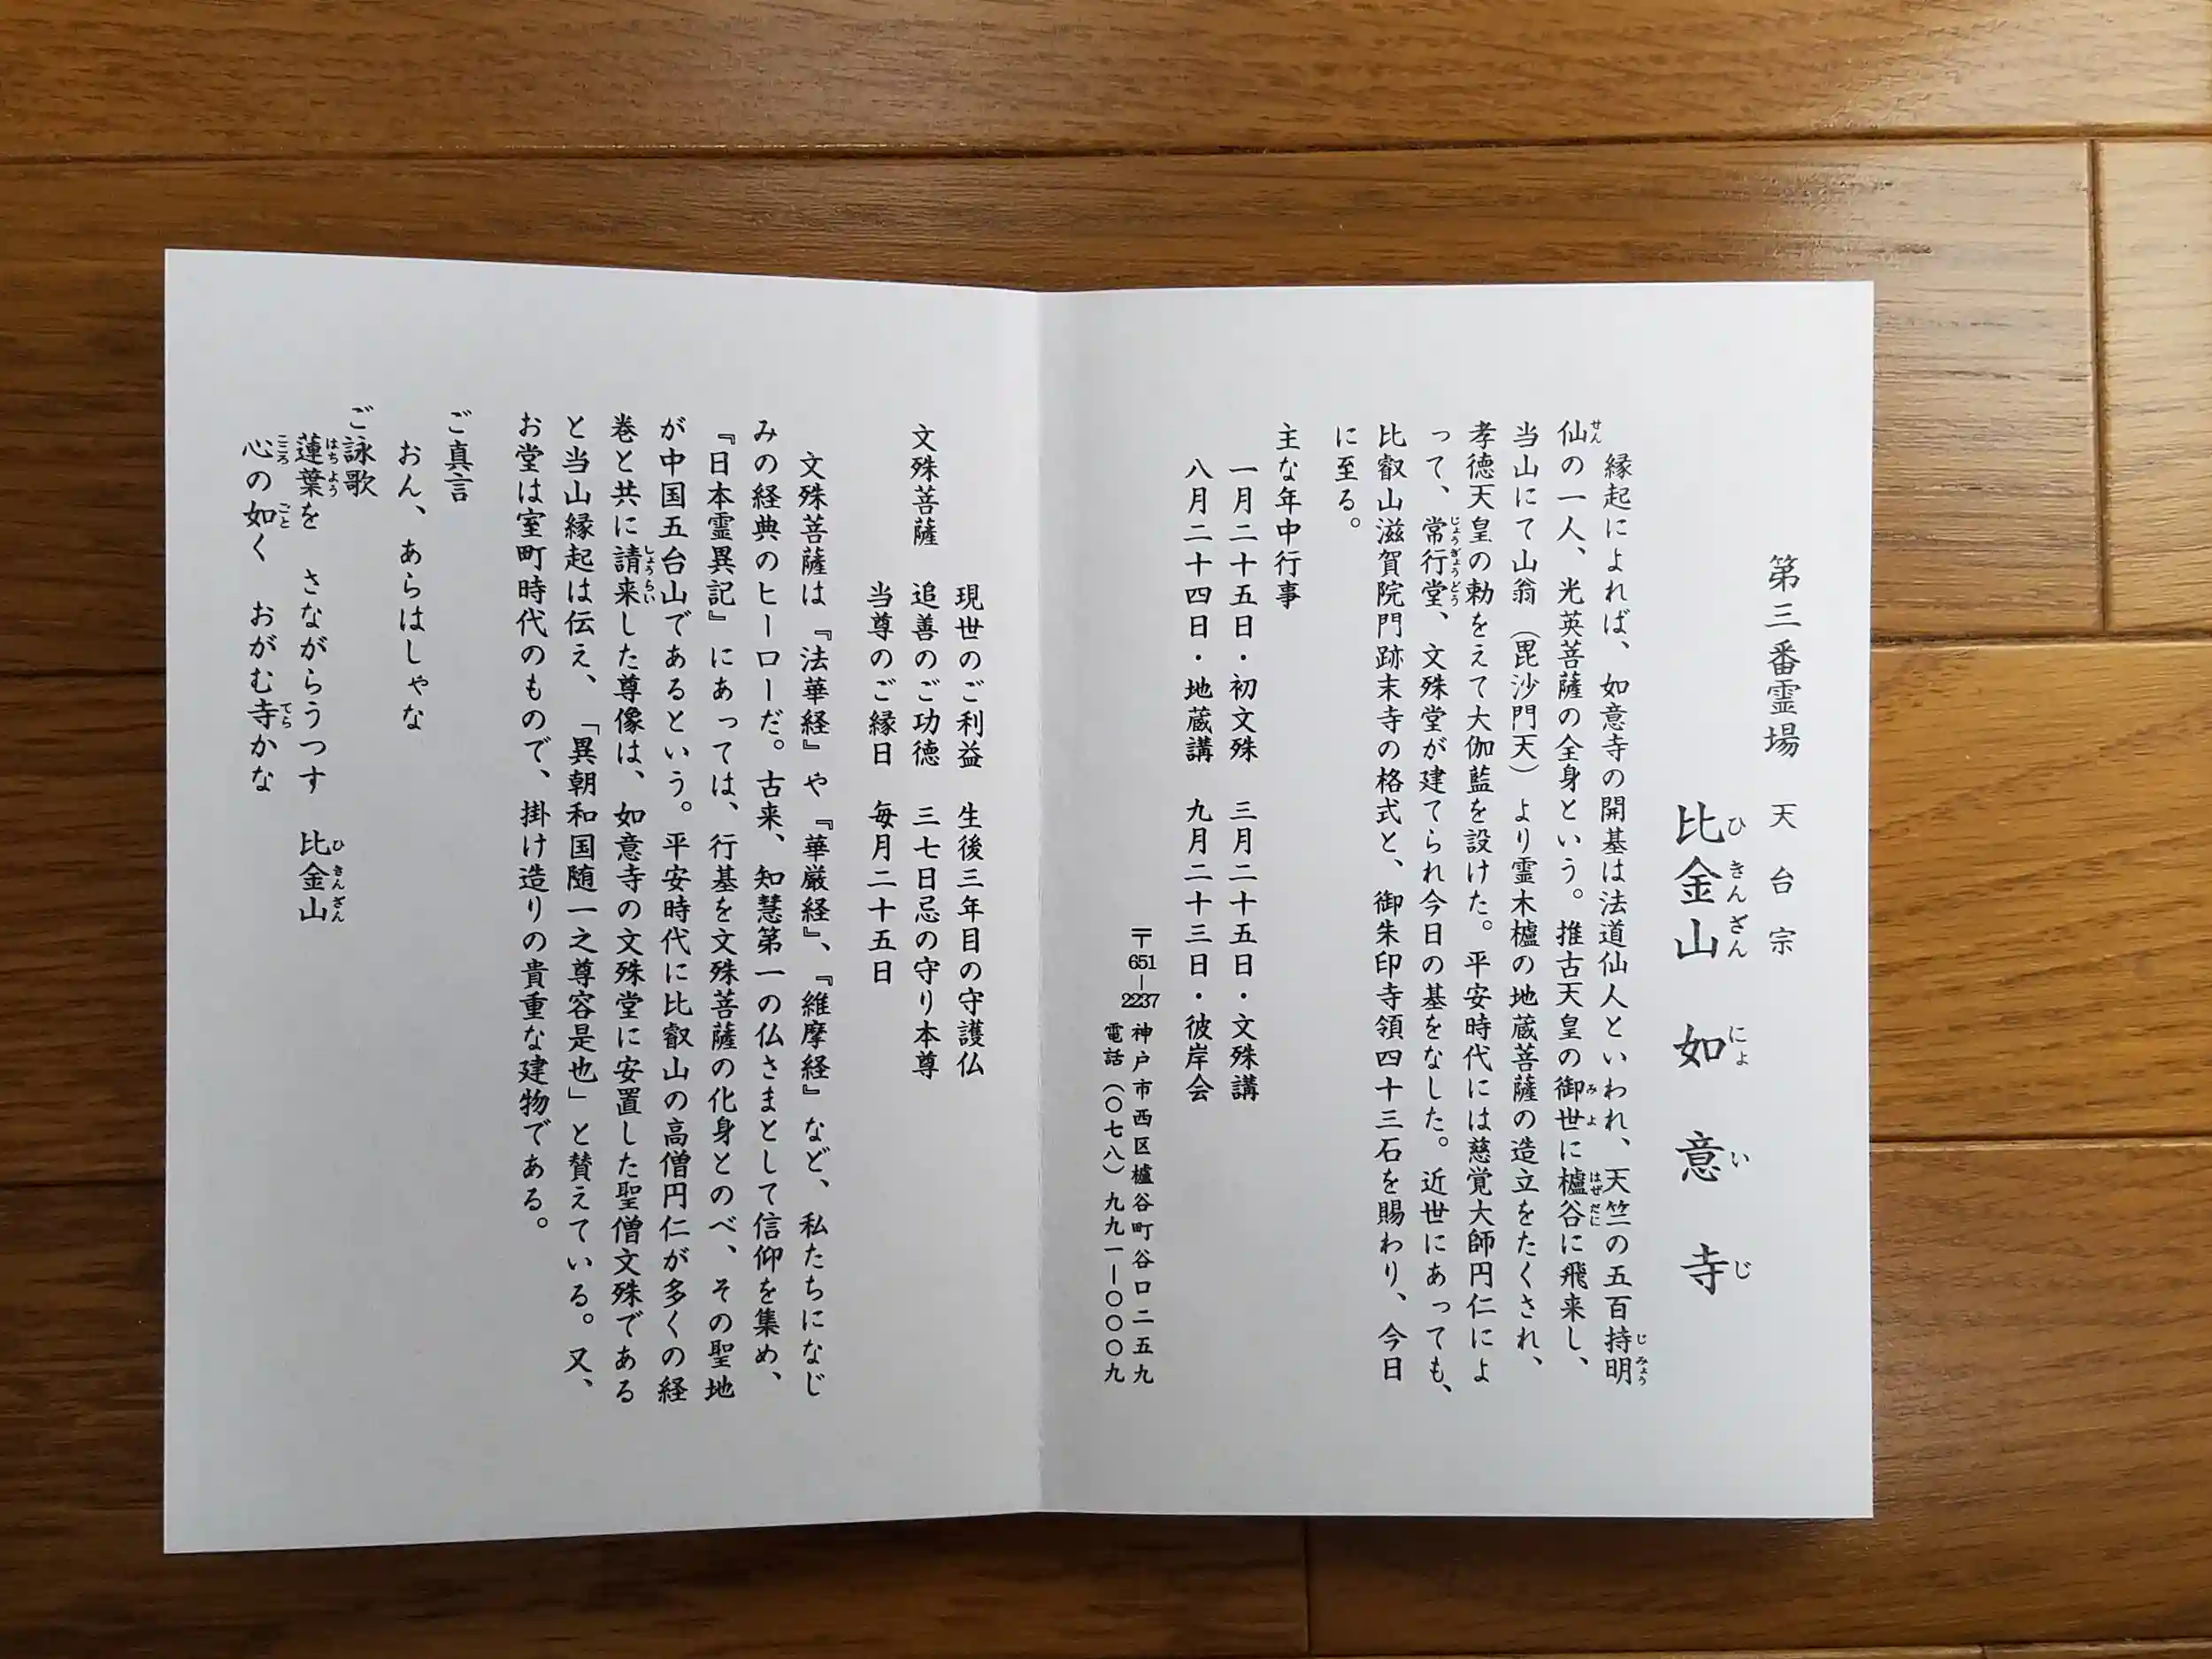 第三番霊場　天台宗
比金山　如意寺
縁起によれば、如意寺の開基は法道仙人といわれ、天竺の五百持明
仙の一人、光英菩薩の全身という。推古天皇の御世に櫨谷に飛来し、
当山にて山翁（毘沙門天）より霊木櫨の地蔵菩薩の造立をたくされ、
孝徳天皇の勅をえて大伽藍を設けた。平安時代には慈覚大師円仁によ
って、常行堂、文殊堂が建てられ今日の基をなした。近世にあっても、
比叡山滋賀院門跡末寺の格式と、御朱印寺領四十三石を賜わり、今日
に至る。
主な年中行事
一月二十五日・初文殊　三月二十五日・文殊講
八月二十四日・地蔵講　九月二十三日・彼岸会
〒651-2237 神戸市西区櫨谷町谷口二五九
電話（〇七八）九九一ー〇〇〇九
現世のご利益　生後三年目の守護仏
文殊菩薩　追善のご功徳　三七日忌の守り本尊
当尊のご縁日　毎月二十五日
文殊菩薩は『法華経』や『華厳経』、『維摩経』など、私たちになじ
みの経典のヒーローだ。古来、知慧第一の仏さまとして信仰を集め、
『日本霊異記』にあっては、行基を文殊菩薩の化身とのべ、その聖地
が中国五台山であるという。平安時代に比叡山の高僧円仁が多くの経
巻と共に請来した尊像は、如意寺の文殊堂に安置した聖僧文殊である
と当山縁起は伝え、「異朝和国随一之尊容是也」と賛えている。又、
お堂は室町時代のもので、掛け造りの貴重な建物である。
ご真言
おん、あらはしゃな
ご詠歌
蓮葉を　さながらうつす　比金山
心の如く　おがむ寺かな